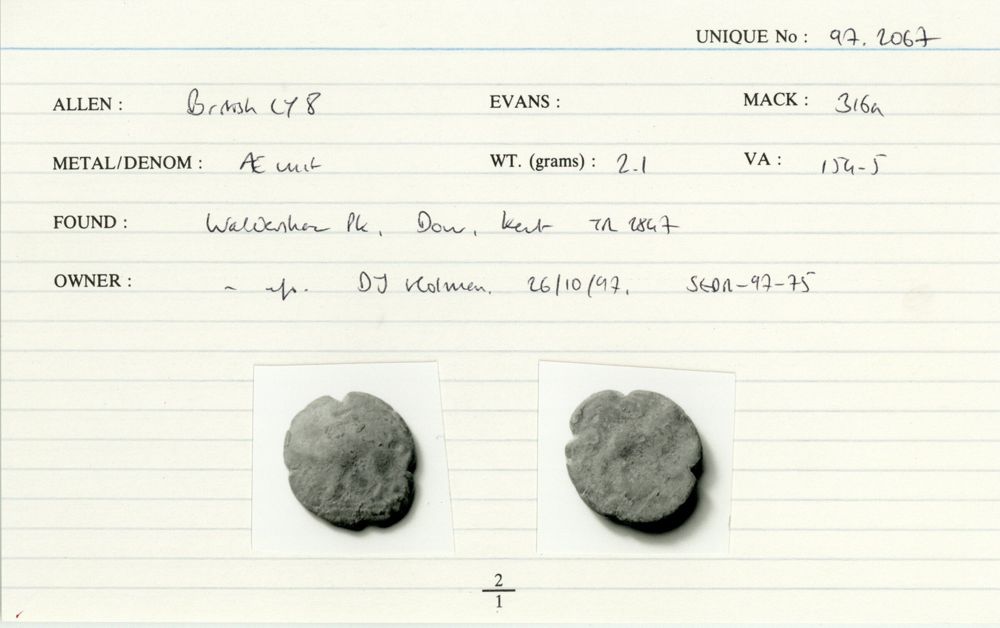 UNIQUE No : 97.2067
ALLEN : British LY 8 EVANS : MACK : 316a
METAL/DENOM : Æ unit WT. (grams) : 2.1 VA : 154-5
FOUND : Waldershare Pk, Dover, Kent TR 2847
OWNER : DJ Holman. 26/10/97. 97-75
2
1